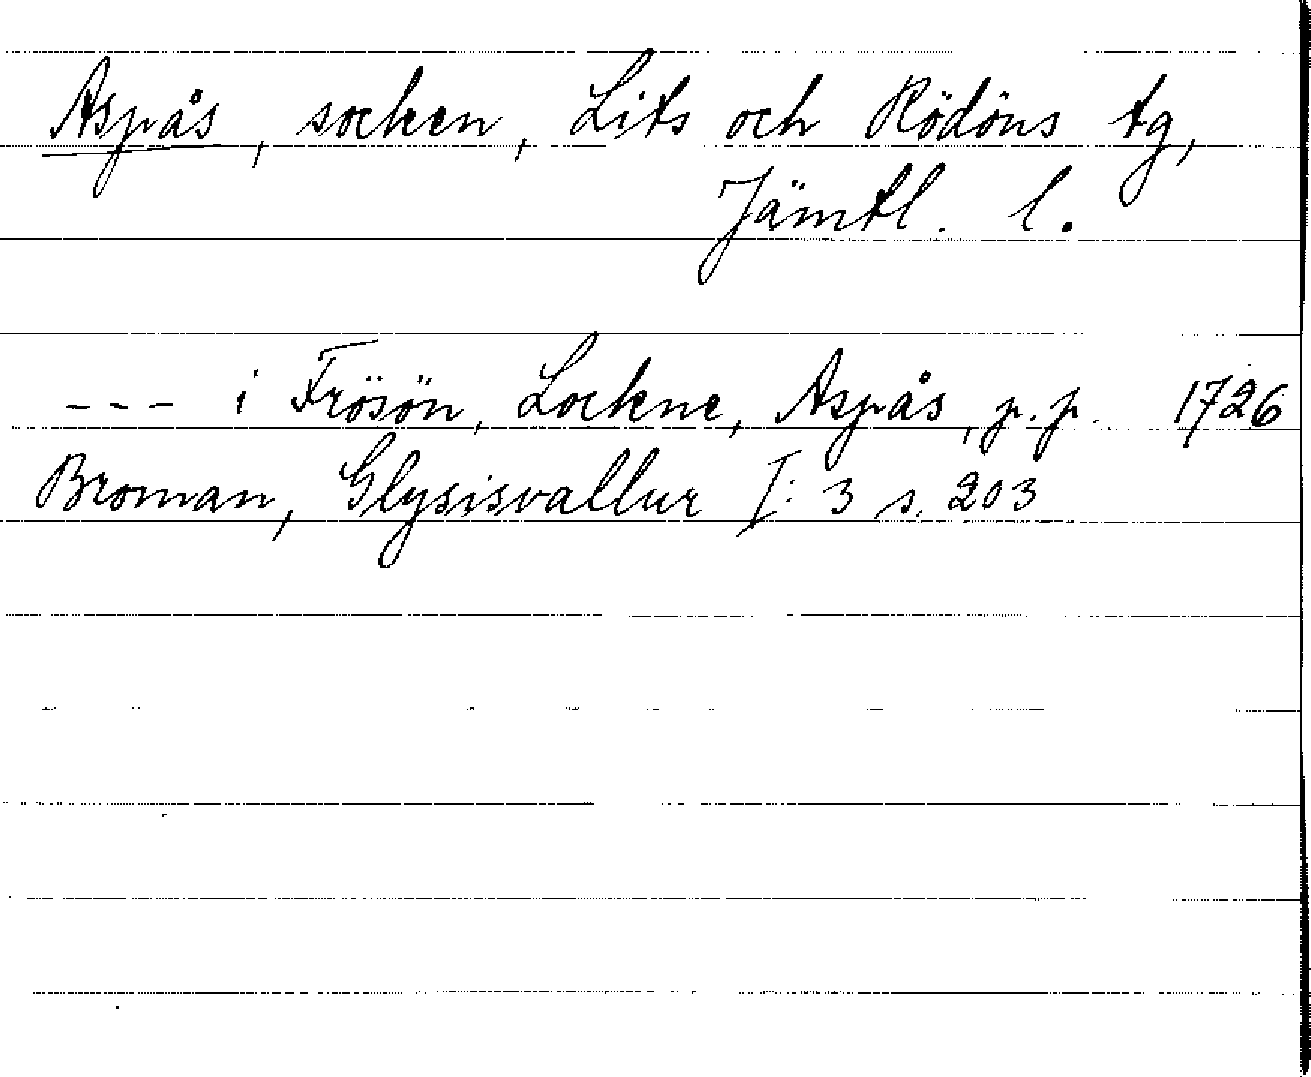 Aspås, socken, Lits och Rödöns tg,
Jämtl. l.
--- i Frösön, Lockne, Aspås, p.p. 1726
Broman, Glysisvallur I:3 s. 203